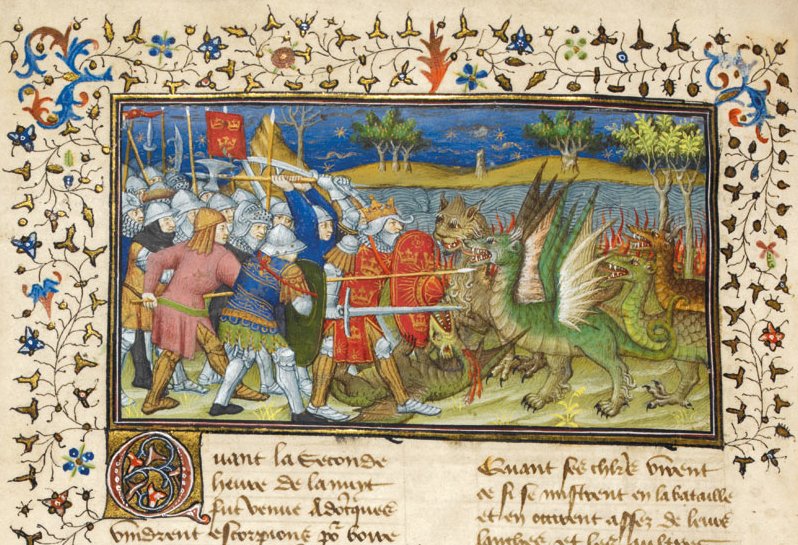 Quant la Seconde
heure de la nuyt
fut venue Adocques
vindrent escorpions po boire
Quant ses chlrs virent
ce si se mistrent en la bataille
et en occirent assez de leurs
lanches et les aultres